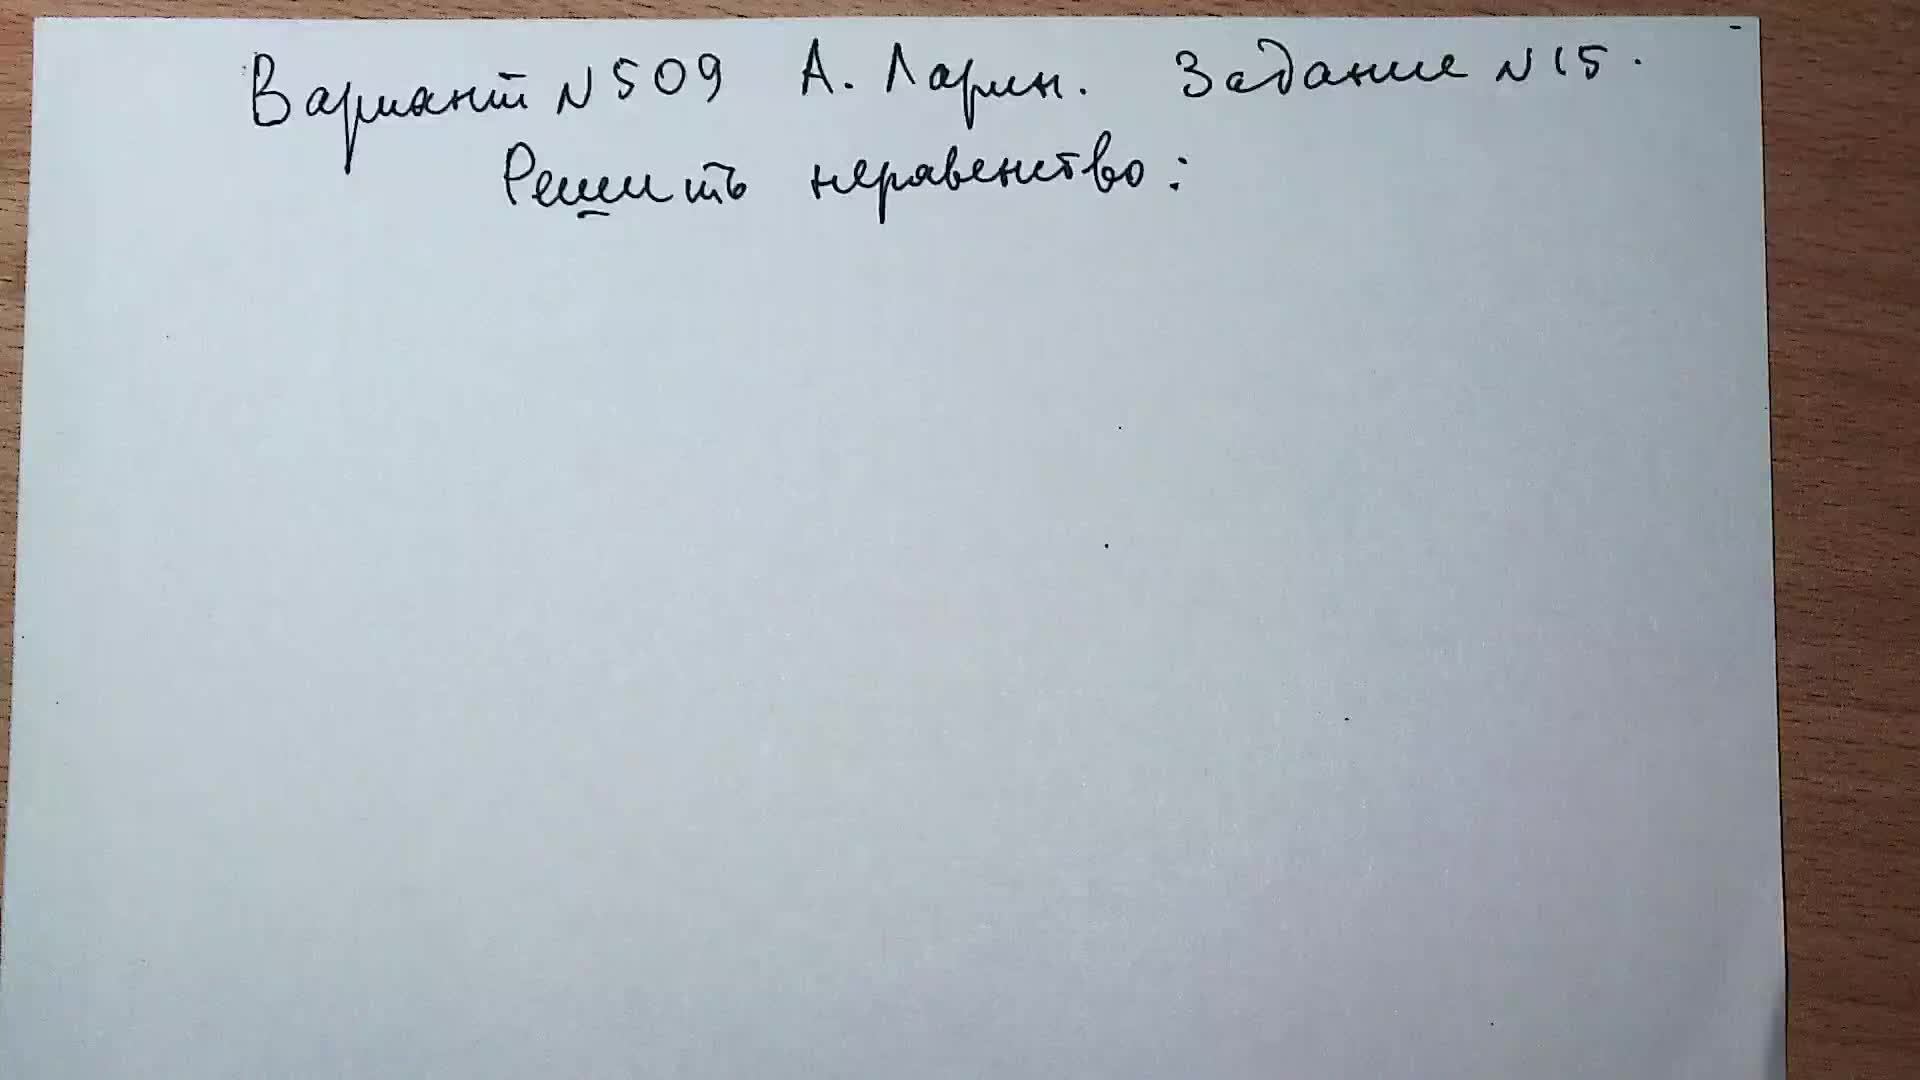 Вариант N 509 А. Ларин. Задание N 15.
Решить неравенство: